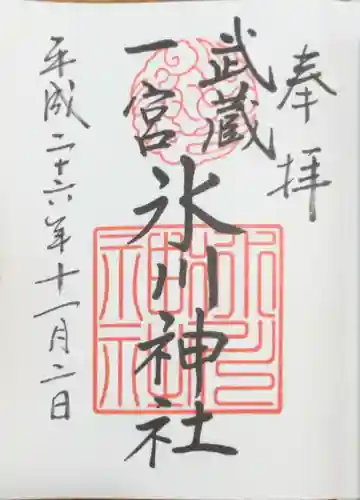 奉拝
武蔵
一宮
氷川神社
平成二十六年十一月二日
氷川
神社